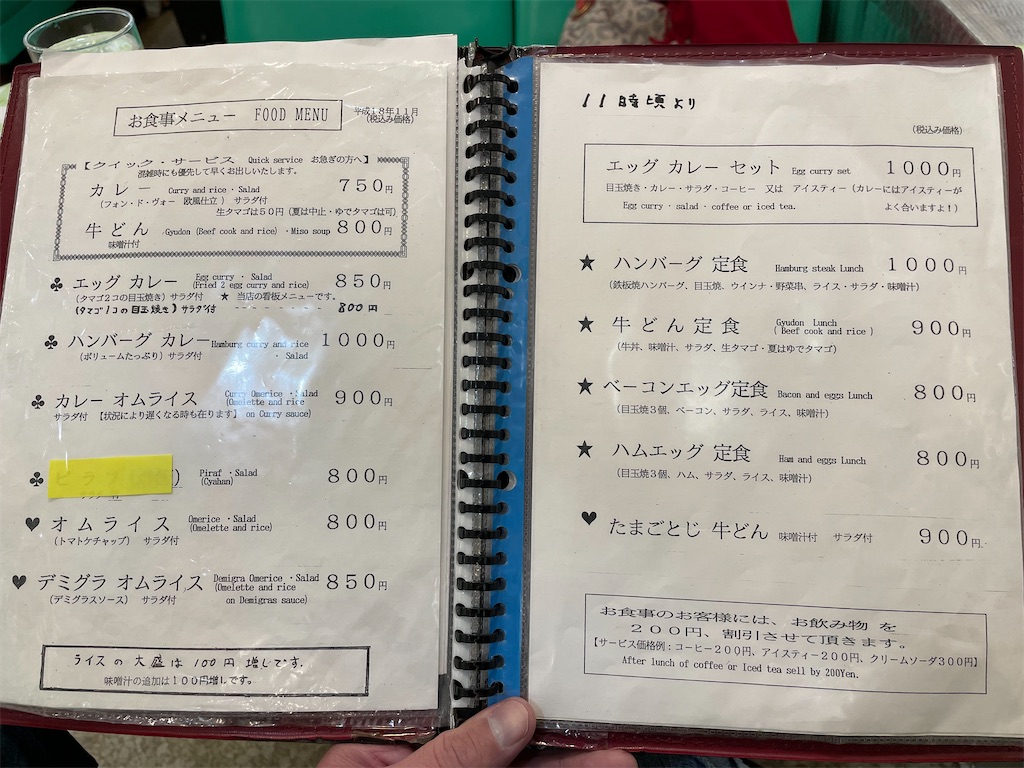 お食事メニュー FOOD MENU
平成18年11月
(税込み価格)
【クイック・サービス Quick service お急ぎの方へ】
混雑時にも優先して早くお出しいたします。
カレー Curry and rice ・Salad 750円
(フォン・ド・ヴォー 欧風仕立) サラダ付
生タマゴは50円(夏は中止・ゆでタマゴは可)
牛どん Gyudon (Beef cook and rice) ・Miso soup 800円
味噌汁付
♣ エッグ カレー Egg curry ・ Salad 850円
(Fried 2 egg curry and rice)
(タマゴ2コの目玉焼き) サラダ付 ★ 当店の看板メニューです。
(タマゴ1コの目玉焼き) サラダ付 - - - - - - - - 800円
♣ ハンバーグ カレー Hamburg curry and rice 1000円
(ボリュームたっぷり) サラダ付 ・ Salad
♣ カレー オムライス Curry Omerice ・Salad 900円
(Omelette and rice
サラダ付 【状況により遅くなる時も在ります】 on Curry sauce)
♣ ピラフ ) Piraf ・Salad 800円
(Cyahan)
♥ オムライス Omerice ・Salad 800円
(Omelette and rice)
(トマトケチャップ) サラダ付
♥ デミグラ オムライス Demigra Omerice ・Salad 850円
(Omelette and rice
(デミグラスソース) サラダ付 on Demigras sauce)
ライスの大盛は100円増しです.
味噌汁の追加は100円増しです。
11時頃より
(税込み価格)
エッグ カレー セット Egg curry set 1000円
目玉焼き・カレー・サラダ・コーヒー 又は アイスティー (カレーにはアイスティーが
Egg curry・salad・coffee or iced tea. よく合いますよ!)
★ ハンバーグ 定食 Hamburg steak Lunch 1000円
(鉄板焼ハンバーグ、目玉焼、ウインナ・野菜串、ライス・サラダ・味噌汁)
★ 牛どん定食 Gyudon Lunch 900円
(Beef cook and rice )
(牛丼、味噌汁、サラダ、生タマゴ・夏はゆでタマゴ)
★ ベーコンエッグ定食 Bacon and eggs Lunch 800円
(目玉焼3個、ベーコン、サラダ、ライス、味噌汁)
★ ハムエッグ 定食 Ham and eggs Lunch 800円
(目玉焼3個、ハム、サラダ、ライス、味噌汁)
♥ たまごとじ 牛どん 味噌汁付 サラダ付 900円
お食事のお客様には、お飲み物 を
200円、割引させて頂きます。
【サービス価格例:コーヒー200円、アイスティー200円、クリームソーダ300円】
After lunch of coffee or Iced tea sell by 200Yen.